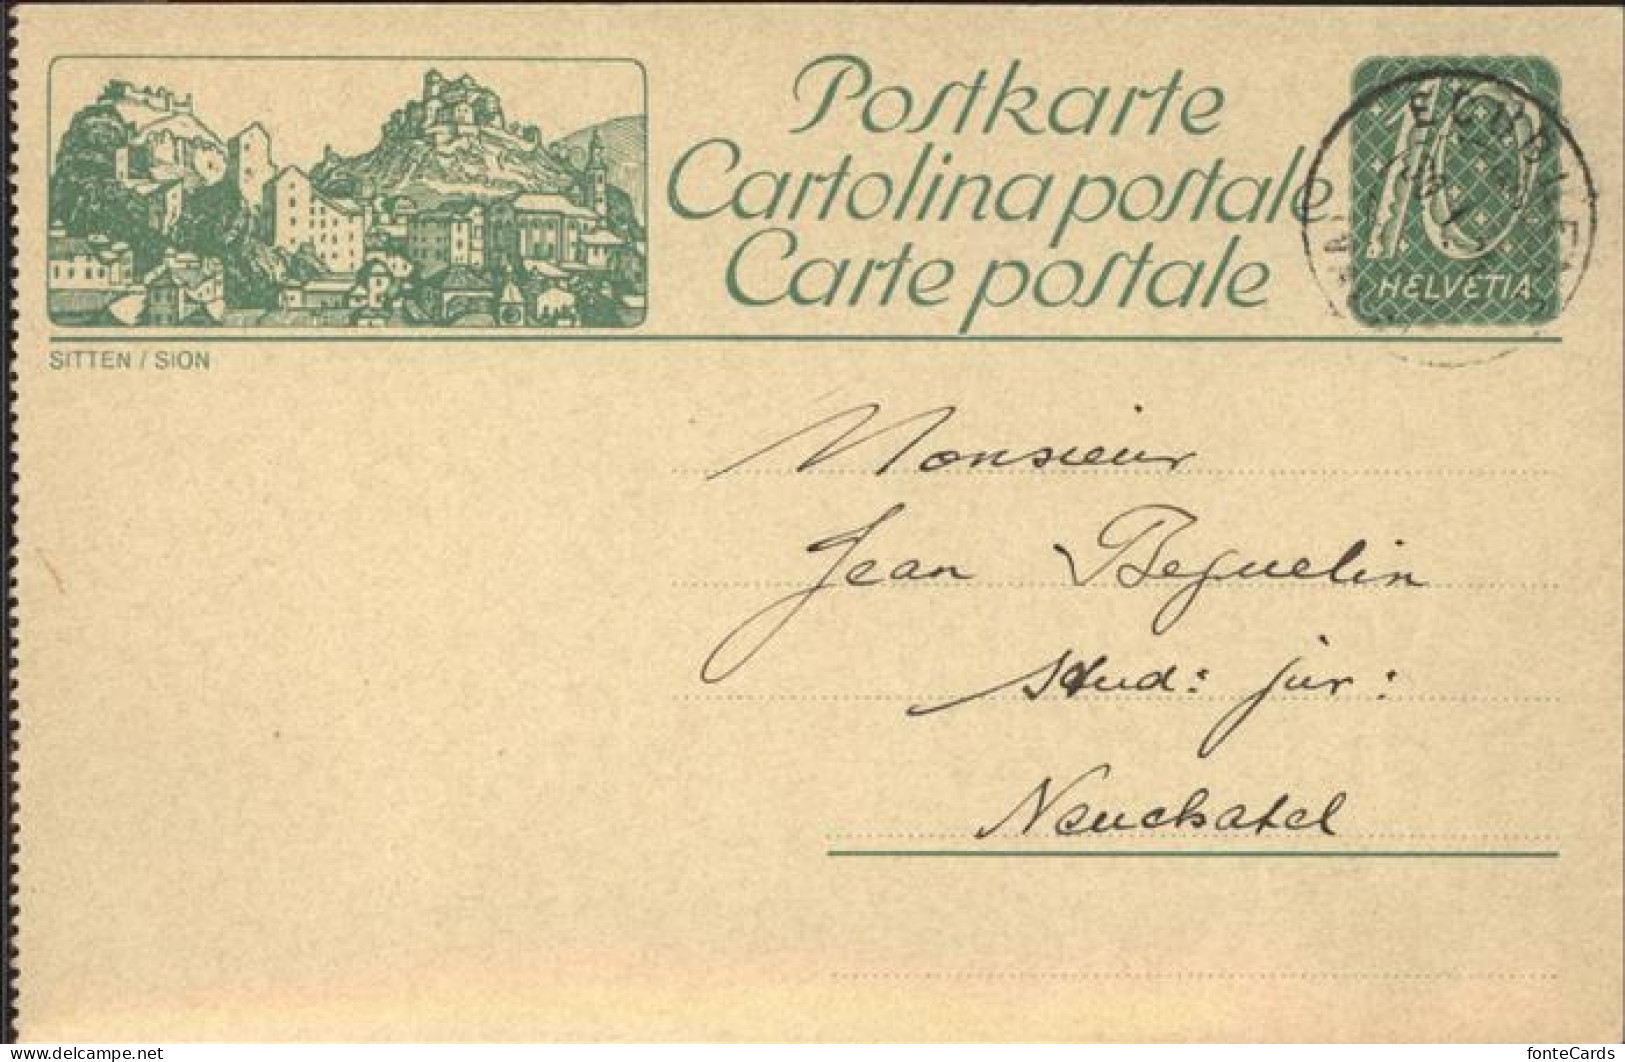 Postkarte
Cartolina postale
Carte postale
10
HELVETIA
SITTEN / SION
Monsieur
Jean Beguelin
stud: jur:
Neuchatel
delcampe.net
fonteCards